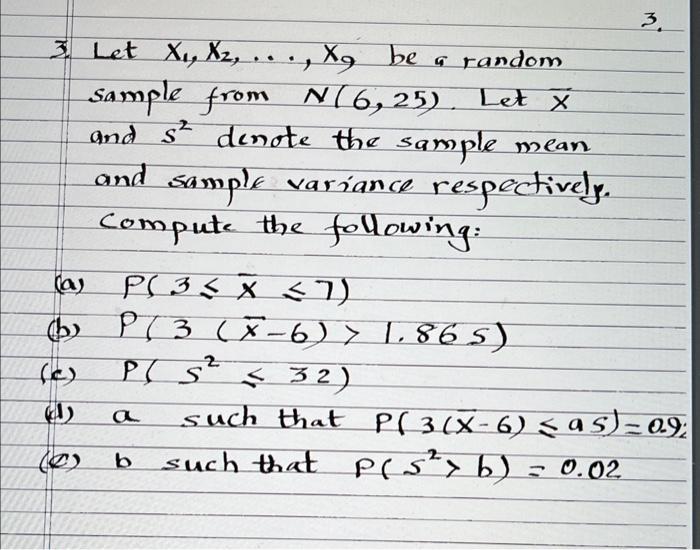 3.
3. Let X1, X2, ..., X9 be a random
sample from N(6, 25). Let x̄
and s² denote the sample mean
and sample variance respectively.
Compute the following:
(a) P(3 ≤ x̄ ≤ 7)
(b) P(3 (x̄-6) > 1.86 s)
(c) P( s² ≤ 32)
(d) a such that P(3(x̄-6) ≤ as) =
(e) b such that P(s² > b) = 0.02